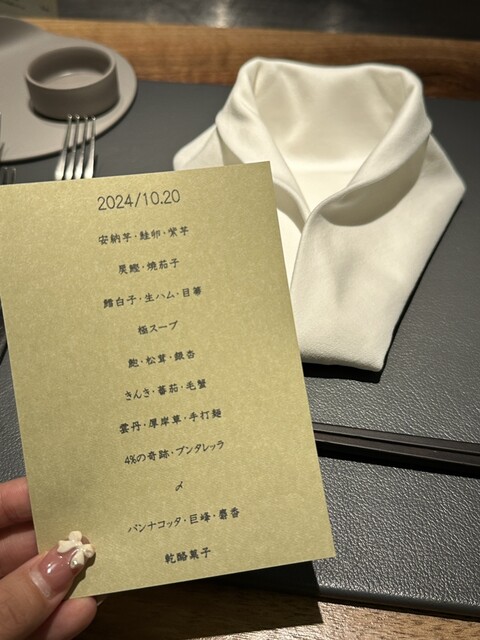 2024/10.20
安納芋・鮭卵・紫芋
戻鰹・焼茄子
鱈白子・生ハム・目箒
極スープ
鮑・松茸・銀杏
きんき・蕃茄・毛蟹
雲丹・厚岸草・手打麺
4%の奇跡・プンタレッラ
〆
パンナコッタ・巨峰・麝香
乾酪菓子